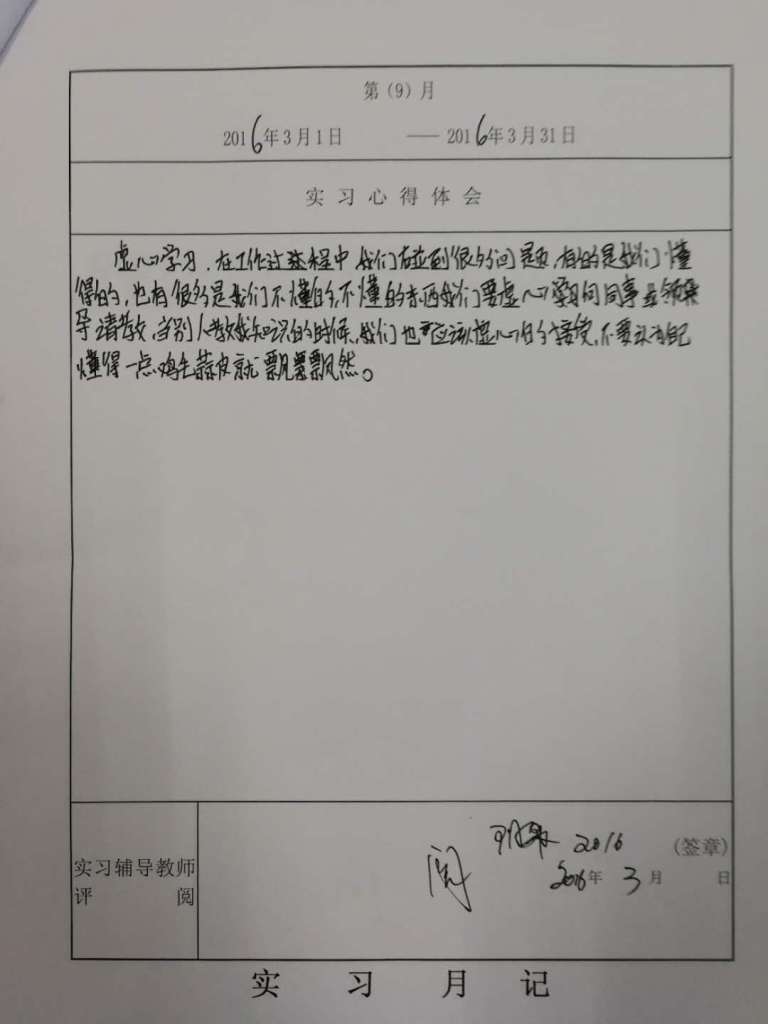 第（9）月
2016年3月1日 —— 2016年3月31日
实习心得体会
虚心学习，在工作过程中我们碰到很多问题，有的是我们懂
得的，也有很多是我们不懂的，不懂的东西我们要虚心学习向同事或领
导请教，当别人教我知识的时候，我们也应该虚心的接受，不要认为自己
懂得一点鸡毛蒜皮就飘飘然。
实习辅导教师
评阅
阅
2016 （签章）
2016年3月 日
实习月记